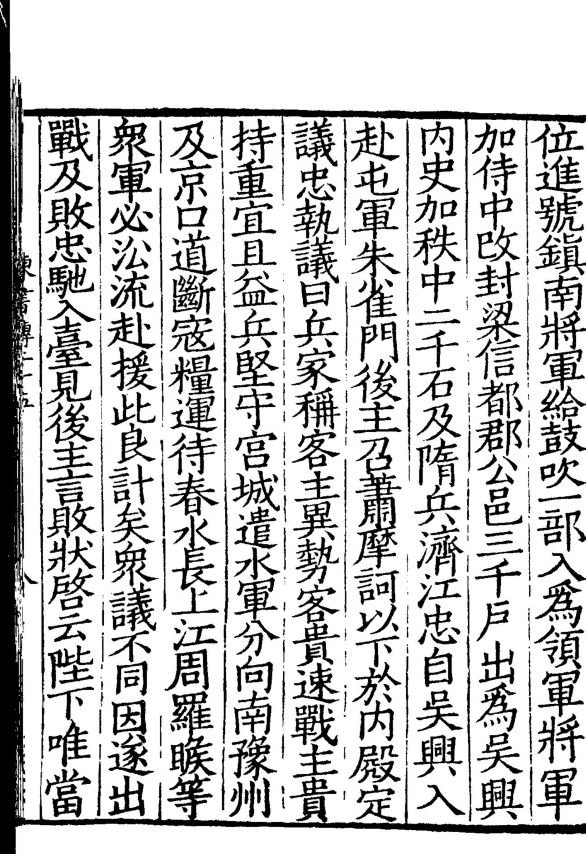 位進號鎮南將軍給鼓吹一部入爲領軍將軍
加侍中改封梁信都郡公邑三千户出爲吳興
内史加秩中二千石及隋兵濟江忠自吳興入
赴屯軍朱雀門後主召蕭摩訶以下於内殿定
議忠執議曰兵家稱客主異勢客貴速戰主貴
持重宜且益兵堅守宫城遣水軍分向南豫州
及京口道斷寇糧運待春水長上江周羅睺等
衆軍必㳂流赴援此良計矣衆議不同因遂出
戰及敗忠馳入臺見後主言敗狀啓云陛下唯當